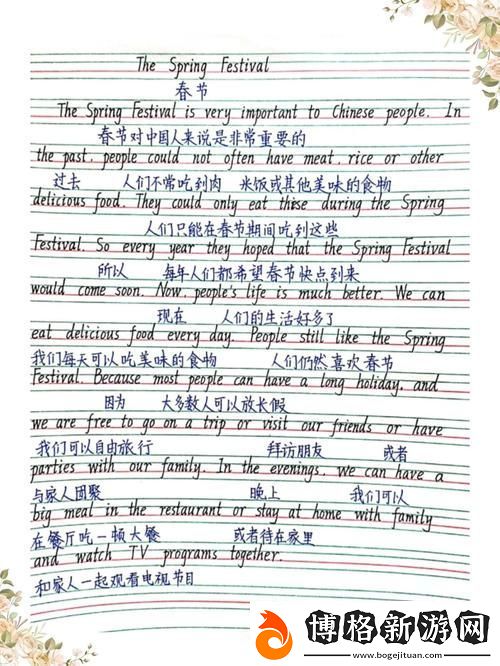 The Spring Festival
春节
The Spring Festival is very important to Chinese people. In
春节对中国人来说是非常重要的
the past, people could not often have meat, rice or other
过去 人们不常吃到肉 米饭或其他美味的食物
delicious food. They could only eat these during the Spring
人们只能在春节期间吃到这些
Festival. So every year they hoped that the Spring Festival
所以 每年人们都希望春节快点到来
would come soon. Now, people's life is much better. We can
现在 人们的生活好多了
eat delicious food every day. People still like the Spring
我们每天可以吃美味的食物 人们仍然喜欢春节
Festival. Because most people can have a long holiday, and
因为 大多数人可以放长假
we are free to go on a trip or visit our friends or have
我们可以自由旅行 拜访朋友 或者
parties with our family. In the evenings, we can have a
与家人团聚 晚上 我们可以
big meal in the restaurant or stay at home with family
在餐厅吃一顿大餐 或者待在家里
and watch TV programs together.
和家人一起观看电视节目
博格新游网
www.bogejituan.com